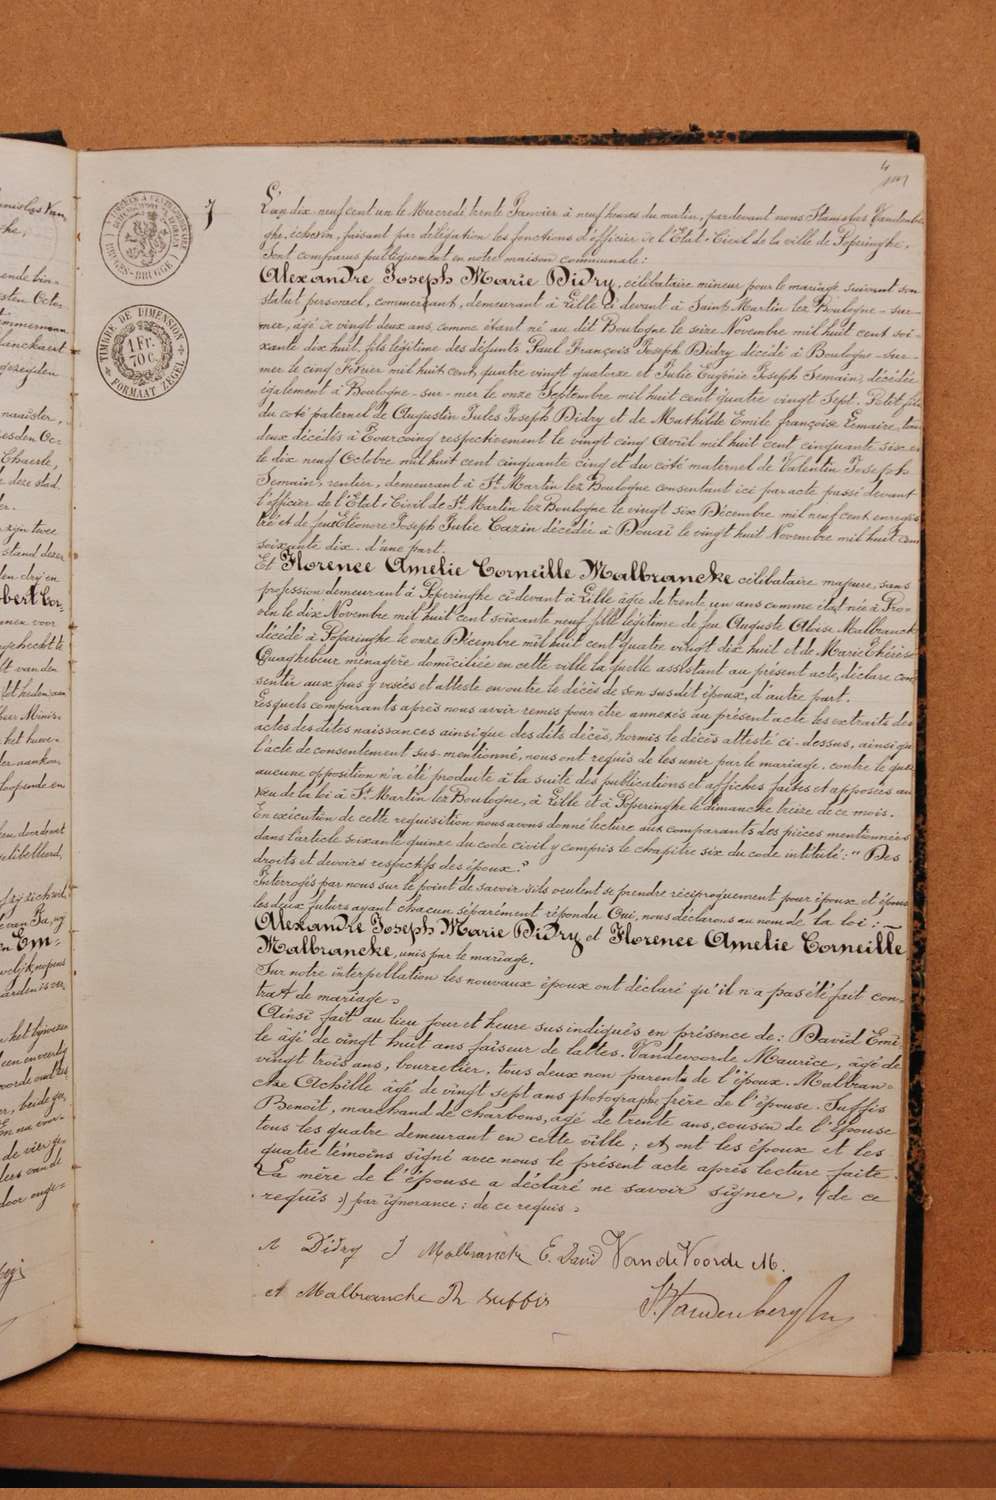 4
7
L'an dix neuf cent un le Mercredi trente Janvier à neuf heures du matin, pardevant nous Stanislas Vandenber
ghe, échevin, faisant par délégation les fonctions d'officier de l'Etat-Civil de la ville de Poperinghe.
Sont comparus publiquement en notre maison communale:
Alexandre Joseph Marie Didry, célibataire mineur pour le mariage suivant son
statut personnel, commerçant, demeurant à Lille ci devant à Saint Martin lez Boulogne-sur-
mer, âgé de vingt deux ans comme étant né au dit Boulogne le seize Novembre mil huit cent soi-
xante dix huit, fils légitime des défunts Paul François Joseph Didry décédé à Boulogne-sur-
mer le cinq Février mil huit cent quatre vingt quatorze et Julie Eugénie Joseph Semain, décédée
également à Boulogne-sur-mer le onze Septembre mil huit cent quatre vingt sept. Petit fils
du coté paternel de Augustin Jules Joseph Didry et de Mathilde Emile françoise Lemaire, tous
deux décédés à Tourcoing respectivement le vingt cinq Avril mil huit cent cinquante six et
le dix neuf Octobre mil huit cent cinquante cinq et du côté maternel de Valentin Joseph
Semain, rentier, demeurant à St Martin lez Boulogne consentant ici par acte passé devant
l'officier de l'Etat-Civil de St Martin lez Boulogne le vingt six Décembre mil neuf cent enregis
tré et de feue Eléonore Joseph Julie Cazin décédée à Douai le vingt huit Novembre mil huit cent
soixante dix. d'une part.
Et Florence Amelie Corneille Malbrancke célibataire majeure, sans
profession demeurant à Poperinghe ci-devant à Lille âgée de trente un ans comme étant née à Pro-
ven le dix Novembre mil huit cent soixante neuf fille légitime de feu Auguste Aloïse Malbrancke
décédé à Poperinghe le onze Décembre mil huit cent quatre vingt dix huit et de Marie Thérèse
Quaghebeur ménagère domiciliée en cette ville la quelle assistant au présent acte, déclare con
sentir aux fins y visées et atteste en outre le décès de son susdit époux, d'autre part.
Lesquels comparants après nous avoir remis pour être annexés au présent acte les extraits des
actes des dites naissances ainsi que des dits décès, hormis le décès attesté ci-dessus, ainsi que
l'acte de consentement sus-mentionné, nous ont requis de les unir par le mariage. contre le quel
aucune opposition n'a été produite à la suite des publications et affiches faites et apposées au
vœu de la loi à St Martin lez Boulogne, à Lille et à Poperinghe le dimanche treize de ce mois.
En exécution de cette requisition nous avons donné lecture aux comparants des pièces mentionnées
dans l'article soixante quinze du code civil y compris le chapitre six du code intitulé: " Des
droits et devoirs respectifs des époux."
Interrogés par nous sur le point de savoir s'ils veulent se prendre réciproquement pour époux et épouse
les deux futurs ayant chacun séparément répondu Oui, nous déclarons au nom de la loi:
Alexandre Joseph Marie Didry et Florence Amelie Corneille
Malbrancke, unis par le mariage.
Sur notre interpellation les nouveaux époux ont déclaré qu'il n'a pas été fait con-
trat de mariage.
Ainsi fait au lieu jour et heure sus indiqués en présence de: David Emi-
le âgé de vingt huit ans faiseur de lattes. Vandevoorde Maurice, âgé de
vingt trois ans, bourrelier, tous deux non parents de l'époux. Malbran-
cke Achille âgé de vingt sept ans photographe frère de l'épouse. Suffis
Benoît, marchand de charbons, âgé de trente ans, cousin de l'épouse
tous les quatre demeurant en cette ville; et ont les époux et les
quatre témoins signé avec nous le présent acte après lecture faite.
La mère de l'épouse a déclaré ne savoir signer, (de ce
requis :) par ignorance: de ce requis.
A Didry J Malbrancke E. David Van de Voorde M.
et Malbrancke Suffis
S. Vandenberghe
TIMBRE DE DIMENSION
1 Fr.
70 C.
FORMAAT ZEGEL
BRUGES-BRUGGE